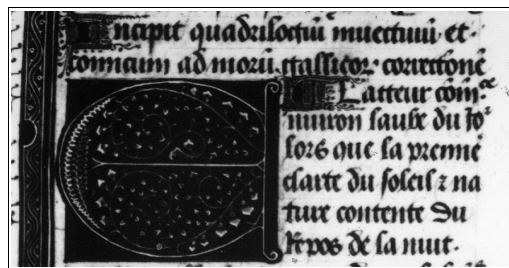 Incipit quadrilogiū inuectiuū et·
comicum ad morū gallicor correctionē
Lacteur cōmce
Enuiron laube du ior
lors que la premie
clarte du soleil ⁊ na
ture contente du
Repos de la nuit·